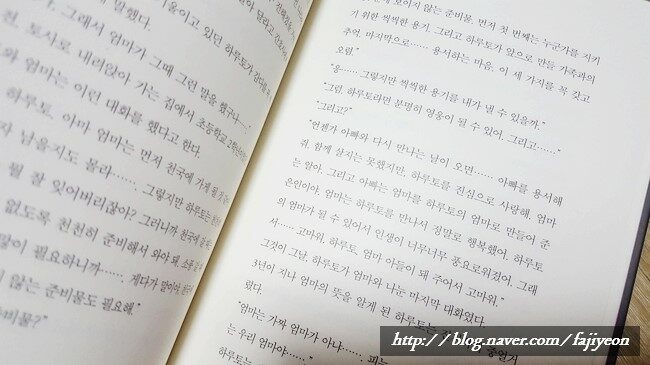 그래서 엄마가 그때 그런 말을 했구나…….
토사로 내리앉아 가는 집에서 초등학교 2학년이던
엄마는 이런 대화를 했다고 한다.
하루토, 아마 엄마는 먼저 천국에 가게 될
남을지도 몰라……. 그렇지만 하루토는
뭘 잘 잊어버리잖아? 그러니까 천국에
없도록 천천히 준비해서 와야 돼.
많이 필요하니까……. 게다가 말이야,
않는 준비물도 필요해."
보이지 않는 준비물. 먼저 첫 번째는 누군가를 지키
기 위한 씩씩한 용기. 그리고 하루토가 앞으로 만들 가족과의
추억. 마지막으로…… 용서하는 마음. 이 세 가지를 꼭 갖고
오렴."
"응……. 그렇지만 씩씩한 용기를 내가 낼 수 있을까."
"그럼, 하루토라면 분명히 영웅이 될 수 있어. 그리고……."
"그리고?"
"언젠가 아빠와 다시 만나는 날이 오면…… 아빠를 용서해
줘. 함께 살지는 못했지만, 하루토를 진심으로 사랑해. 엄마
는 알아. 그리고 아빠는 엄마를 하루토의 엄마로 만들어 준
은인이야. 엄마는 하루토를 만나서 정말로 행복했어. 하루토
의 엄마가 될 수 있어서 인생이 너무너무 풍요로워졌어. 그래
서…… 고마워, 하루토. 엄마 아들이 돼 주어서 고마워."
그것이 그날, 하루토가 엄마와 나눈 마지막 대화였다.
3년이 지나 엄마의 뜻을 알게 된 하루토는
렸다.
"엄마는 가짜 엄마가 아냐……. 피는
는 우리 엄마야……."
하루토는
http://blog.naver.com/fajiyeon